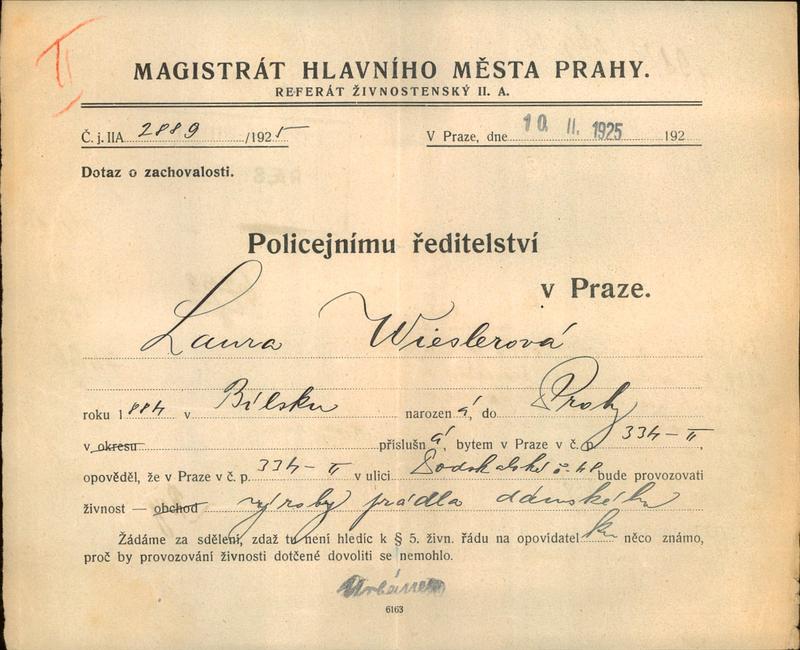 II
MAGISTRÁT HLAVNÍHO MĚSTA PRAHY.
REFERÁT ŽIVNOSTENSKÝ II. A.
Č. j. IIA 2889 /1925 V Praze, dne 10. II. 1925 192
Dotaz o zachovalosti.
Policejnímu ředitelství
v Praze.
Laura Wieslerová
roku 1884 v Bílsku narozená, do Prahy
v okresu příslušná, bytem v Praze v č. p. 334-II,
opověděl, že v Praze v č. p. 334-II v ulici Podskalské č. 48 bude provozovati
živnost — obchod výroby prádla dámského
Žádáme za sdělení, zdaž tu není hledíc k § 5. živn. řádu na opovídatelku něco známo,
proč by provozování živnosti dotčené dovoliti se nemohlo.
Urbánek
6163